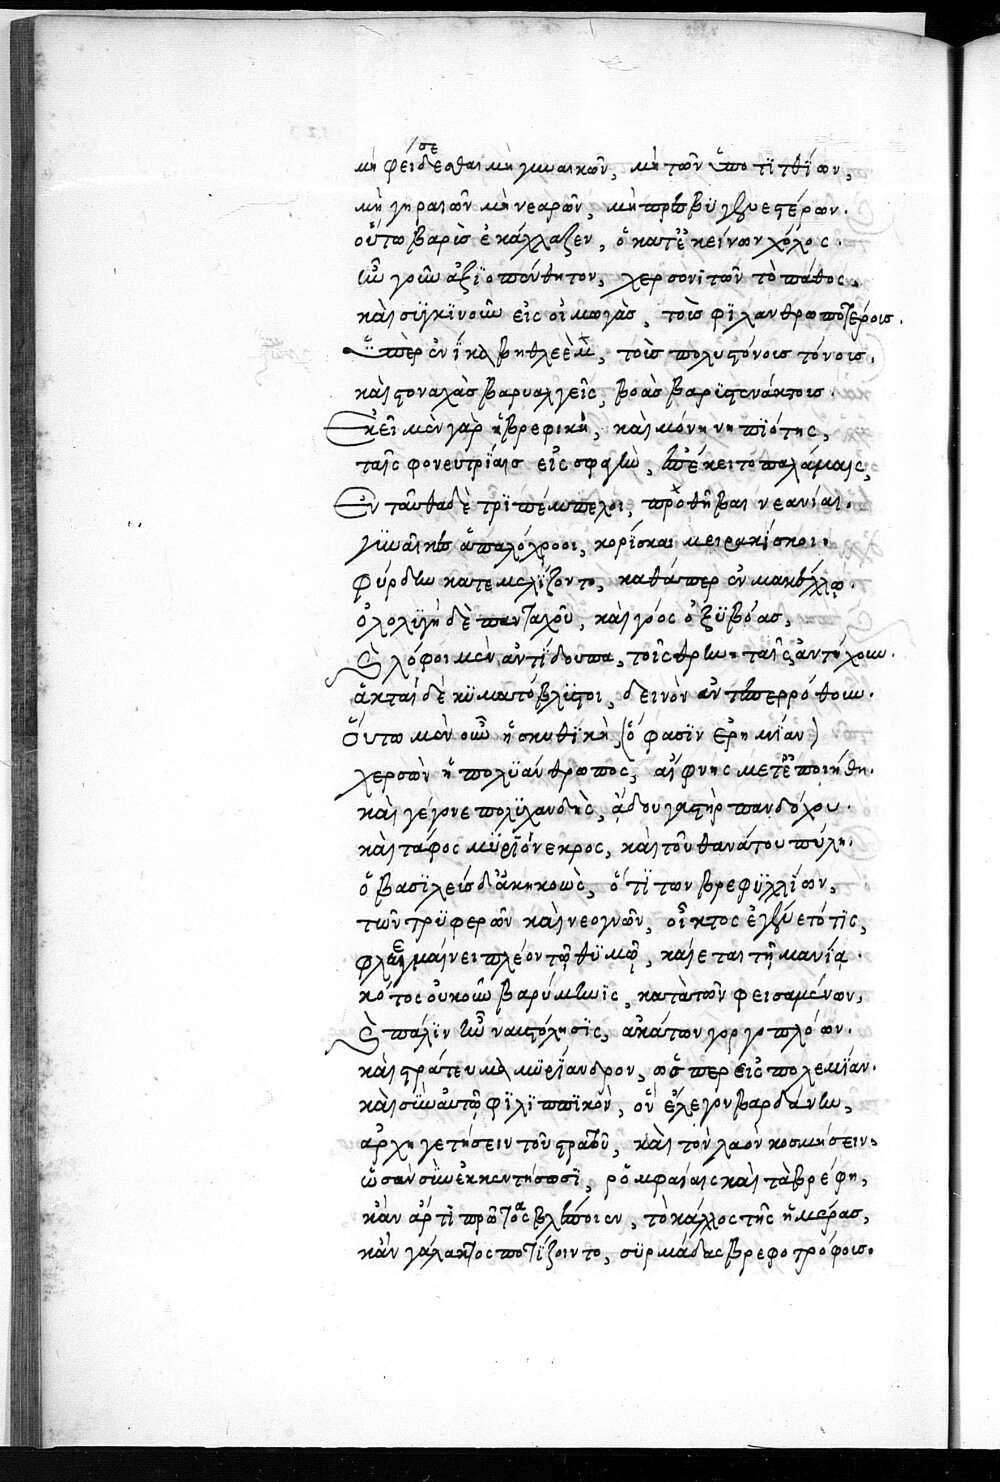 μὴ φείδεσθαι μὴ γυναικῶν, μὴ τῶν ὑποτιτθίων,
μὴ γηραιῶν μὴ νεαρῶν, μὴ πρεσβυγενεστέρων.
οὕτω βαρὺς ἐκάχλαζεν, ὁ κατ' ἐκείνων χόλος.
ὢ γοῦν ἀξιοπένθητον, χερσονιτῶν τὸ πάθος.
καὶ συγκινοῦν εἰς οἰμωγὰς, τοὺς φιλανθρωποτέρους.
ὑπὲρ ἐνίκα βηθλεὲμ, τοὺς πολυστόνους τόνους,
καὶ στοναχὰς βαρυαλγεῖς, βοὰς βαρυστενάκτους.
Ἐκεῖ μὲν γὰρ ἡ βρεφικὴ, καὶ μόνη νηπιότης,
ταῖς φονευτρίαις εἰς σφαγὴν, ὑπέκειτο παλάμαις,
Ἐνταῦθα δὲ τριπέμπελοι, πρωθῆβαι νεανίαι.
γυναῖκες ἁπαλόχροοι, κορίσκαι μειρακίσκοι.
φύρδην κατεμελίζοντο, καθάπερ ἐν μακέλλῳ.
ὀλολυγὴ δὲ πανταχοῦ, καὶ γόος ὀξυβόας,
λόφοι μὲν ἀντίδουπα, τοῖς θρήνοις ἀντήχουν.
ἀκταὶ δὲ κυματόβλητοι, δεινὸν ἀντεπερρόθουν.
Οὕτω μὲν οὖν ἡ σκυθικὴ, (ὅ φασιν ἐρημίαν)
χερσὼν ἡ πολυάνθρωπος, αἴφνης μετεποιήθη.
καὶ γέγονε πολυχανδὴς, ᾅδου γαστὴρ πανδόχου.
καὶ τάφος μυριόνεκρος, καὶ τοῦ θανάτου πύλη.
ὁ βασιλεὺς δ' ἀκηκοὼς, ὅτι τῶν βρεφυλλίων,
τῶν τρυφερῶν καὶ νεογνῶν, οἶκτος ἐγένετό τις,
φλεγμαίνει πλέον τῷ θυμῷ, καίεται τῇ μανίᾳ.
κότος οὐκοῦν βαρύμηνις, κατὰ τῶν φεισαμένων,
πάλιν ἦν ναυστόλησις, ἀκάτων γοργοπλόων.
καὶ στράτευμα μυρίανδρον, ὥσπερ εἰς πολεμίαν.
καὶ σὺν αὐτῷ φιλιππικὸν, ὃν ἔλεγον βαρδάνην,
ἀρχηγετήσειν τοῦ στρατοῦ, καὶ τὸν λαὸν κοσμήσειν,
ὡς ἂν συνεκκεντήσωσι, ῥομφαίαις καὶ τὰ βρέφη,
κἂν ἄρτι πρώτως βλέποιεν, τὸ κάλλος τῆς ἡμέρας,
κἂν γάλακτος ποτίζοιντο, συρμάδας βρεφοτρόφους.